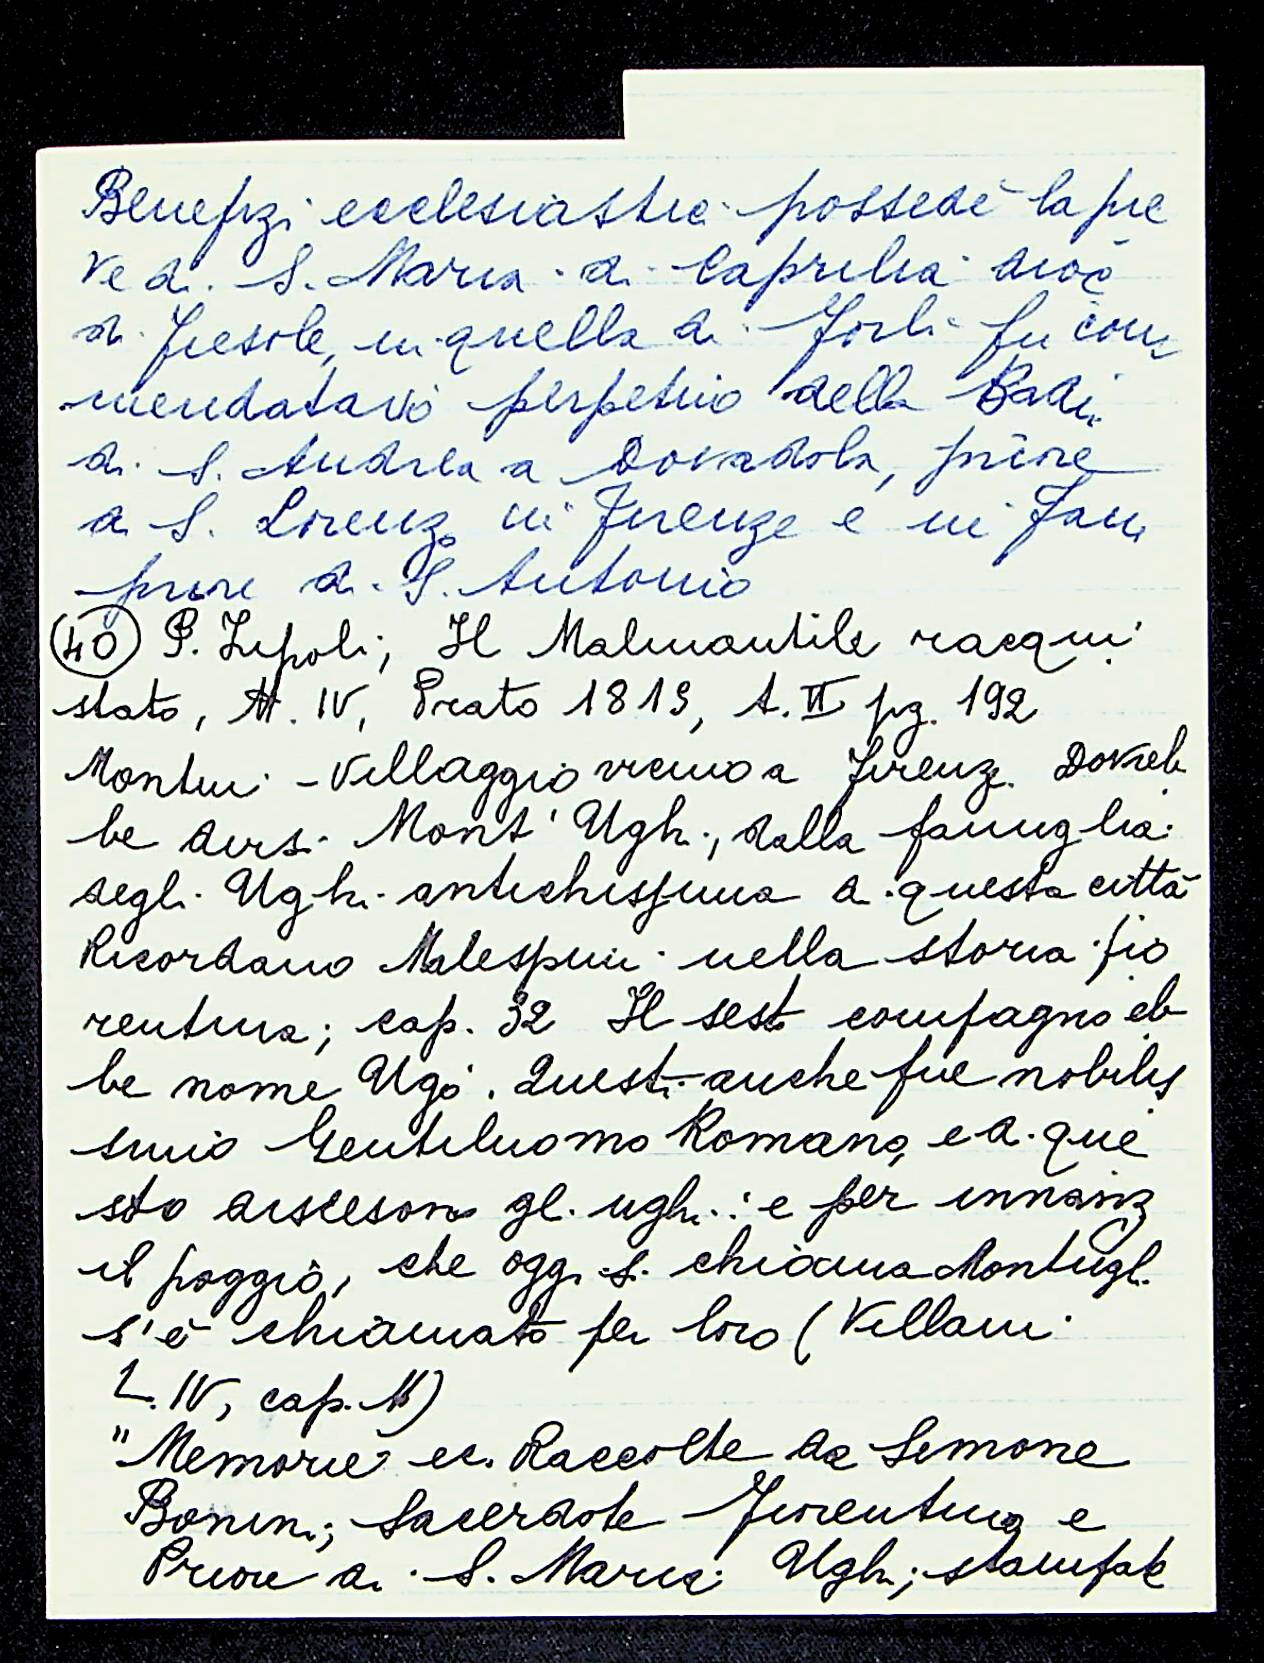 Benefizi ecclesiastici possedé la pie
ve di S. Maria di Caprilia dioc
di Fiesole, in quella di Forlì fu com
mendatario perpetuo della Badia
di S. Andrea a Dovadola, priore
di S. Lorenzo in Firenze e in
priore di S. Antonio
(40) P. Lipoli; Il Malmantile racqui
stato, Prato 1815, t. II pg. 192
Montui - Villaggio vicino a Firenze. Dovreb
be dirsi Mont' Ughi, dalla famiglia
degli Ughi antichissima di questa città
Ricordano Malespini nella storia fio
rentina; cap. 32 Il sesto compagno eb
be nome Ugo. Questi anche fue nobilis
simo Gentiluomo Romano, e di que
sto discesono gli ughi: e per innanzi
il poggio, che oggi si chiama Montughi
s'è chiamato per loro (Villani
L. IV, cap. 11)
"Memorie" ec. Raccolte da Simone
Bonini; Sacerdote Fiorentino e
Priore di S. Maria Ughi; stampate